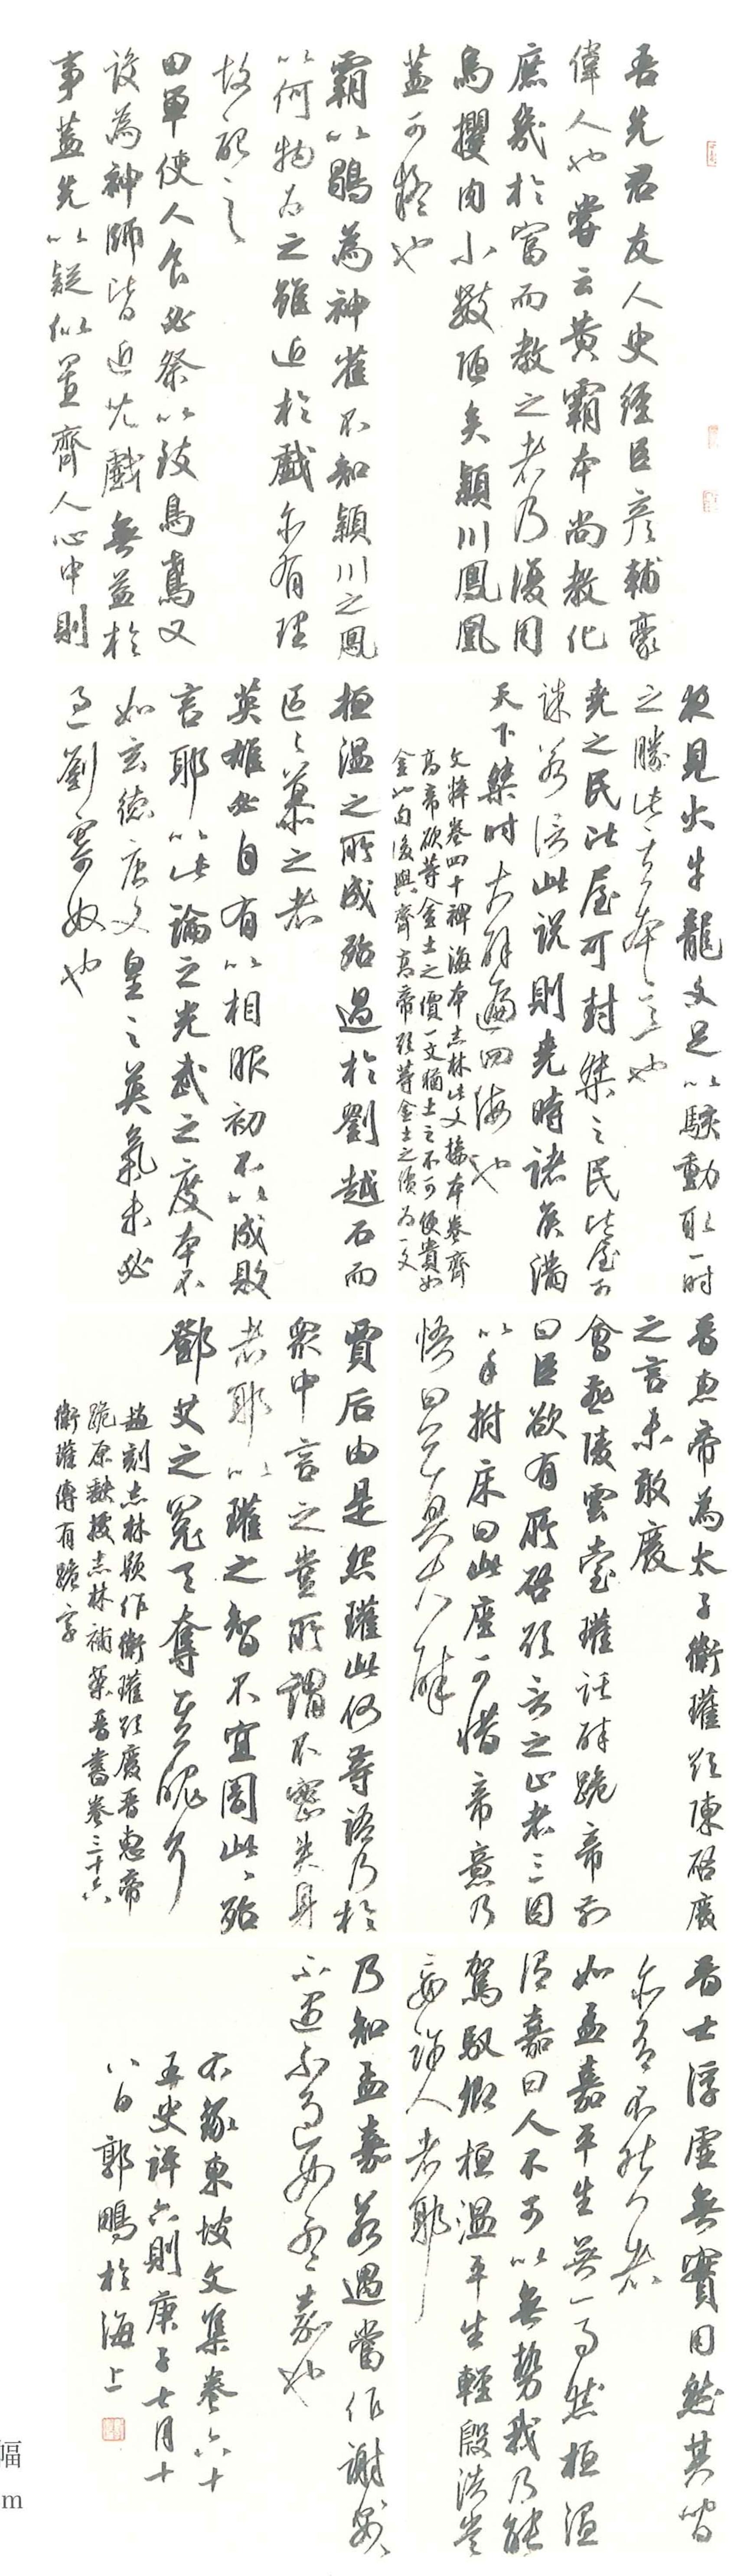 吾先君友人史經臣彥輔豪
偉人也嘗云黃霸本尚教化
庶幾於富而教之者乃復用
烏攫肉小數陋矣潁川鳳凰
蓋可疑也
霸以鶡為神雀不知潁川之鳳
以何物為之雖近於戲亦有理
故記之
田單使人食必祭以致烏鳶又
設為神師皆近兒戲無益於
事蓋先以疑似置齊人心中則
夜見火牛龍文足以駭動取一時
之勝此其本意也
堯之民比屋可封桀之民比屋可
誅若信此說則堯時諸侯滿
天下桀時大辟遍四海也
文粹卷四十稗海本志林此文接本卷齊
高帝欲等金土之價一文猶土之不可使貴如
金也句後與齊高帝欲等金土之價為一文
桓溫之所成殆過於劉越石而
區區慕之者
英雄必自有以相服初不以成敗
言耶以此論之光武之度本不
如玄德唐文皇之英氣未必
過劉寄奴也
晉惠帝為太子衛瓘欲陳啟廢
之言未敢廢
會燕陵雲臺瓘託醉跪帝前
曰臣欲有所啟欲言之止者三因
以手拊床曰此座可惜帝意乃
悟曰公真大醉
賈后由是怨瓘此何等語乃於
眾中言之豈所謂不密失身
者耶以瓘之智不宜闇此此殆
鄧艾之冤天奪其魄爾
趙刻志林題作衛瓘欲廢晉惠帝
跪原缺據志林補案晉書卷三十六
衛瓘傳有跪字
晉士浮虛無實用然其間
亦有不然者
如孟嘉平生無一事然桓溫
謂嘉曰人不可以無勢我乃能
駕馭卿桓溫平生輕殷浩豈
妄許人者耶
乃知孟嘉若遇當作謝安
不遇不過如孟嘉也
右錄東坡文集卷六十
五史評六則庚子七月十
八日郭鵬於海上
幅
m